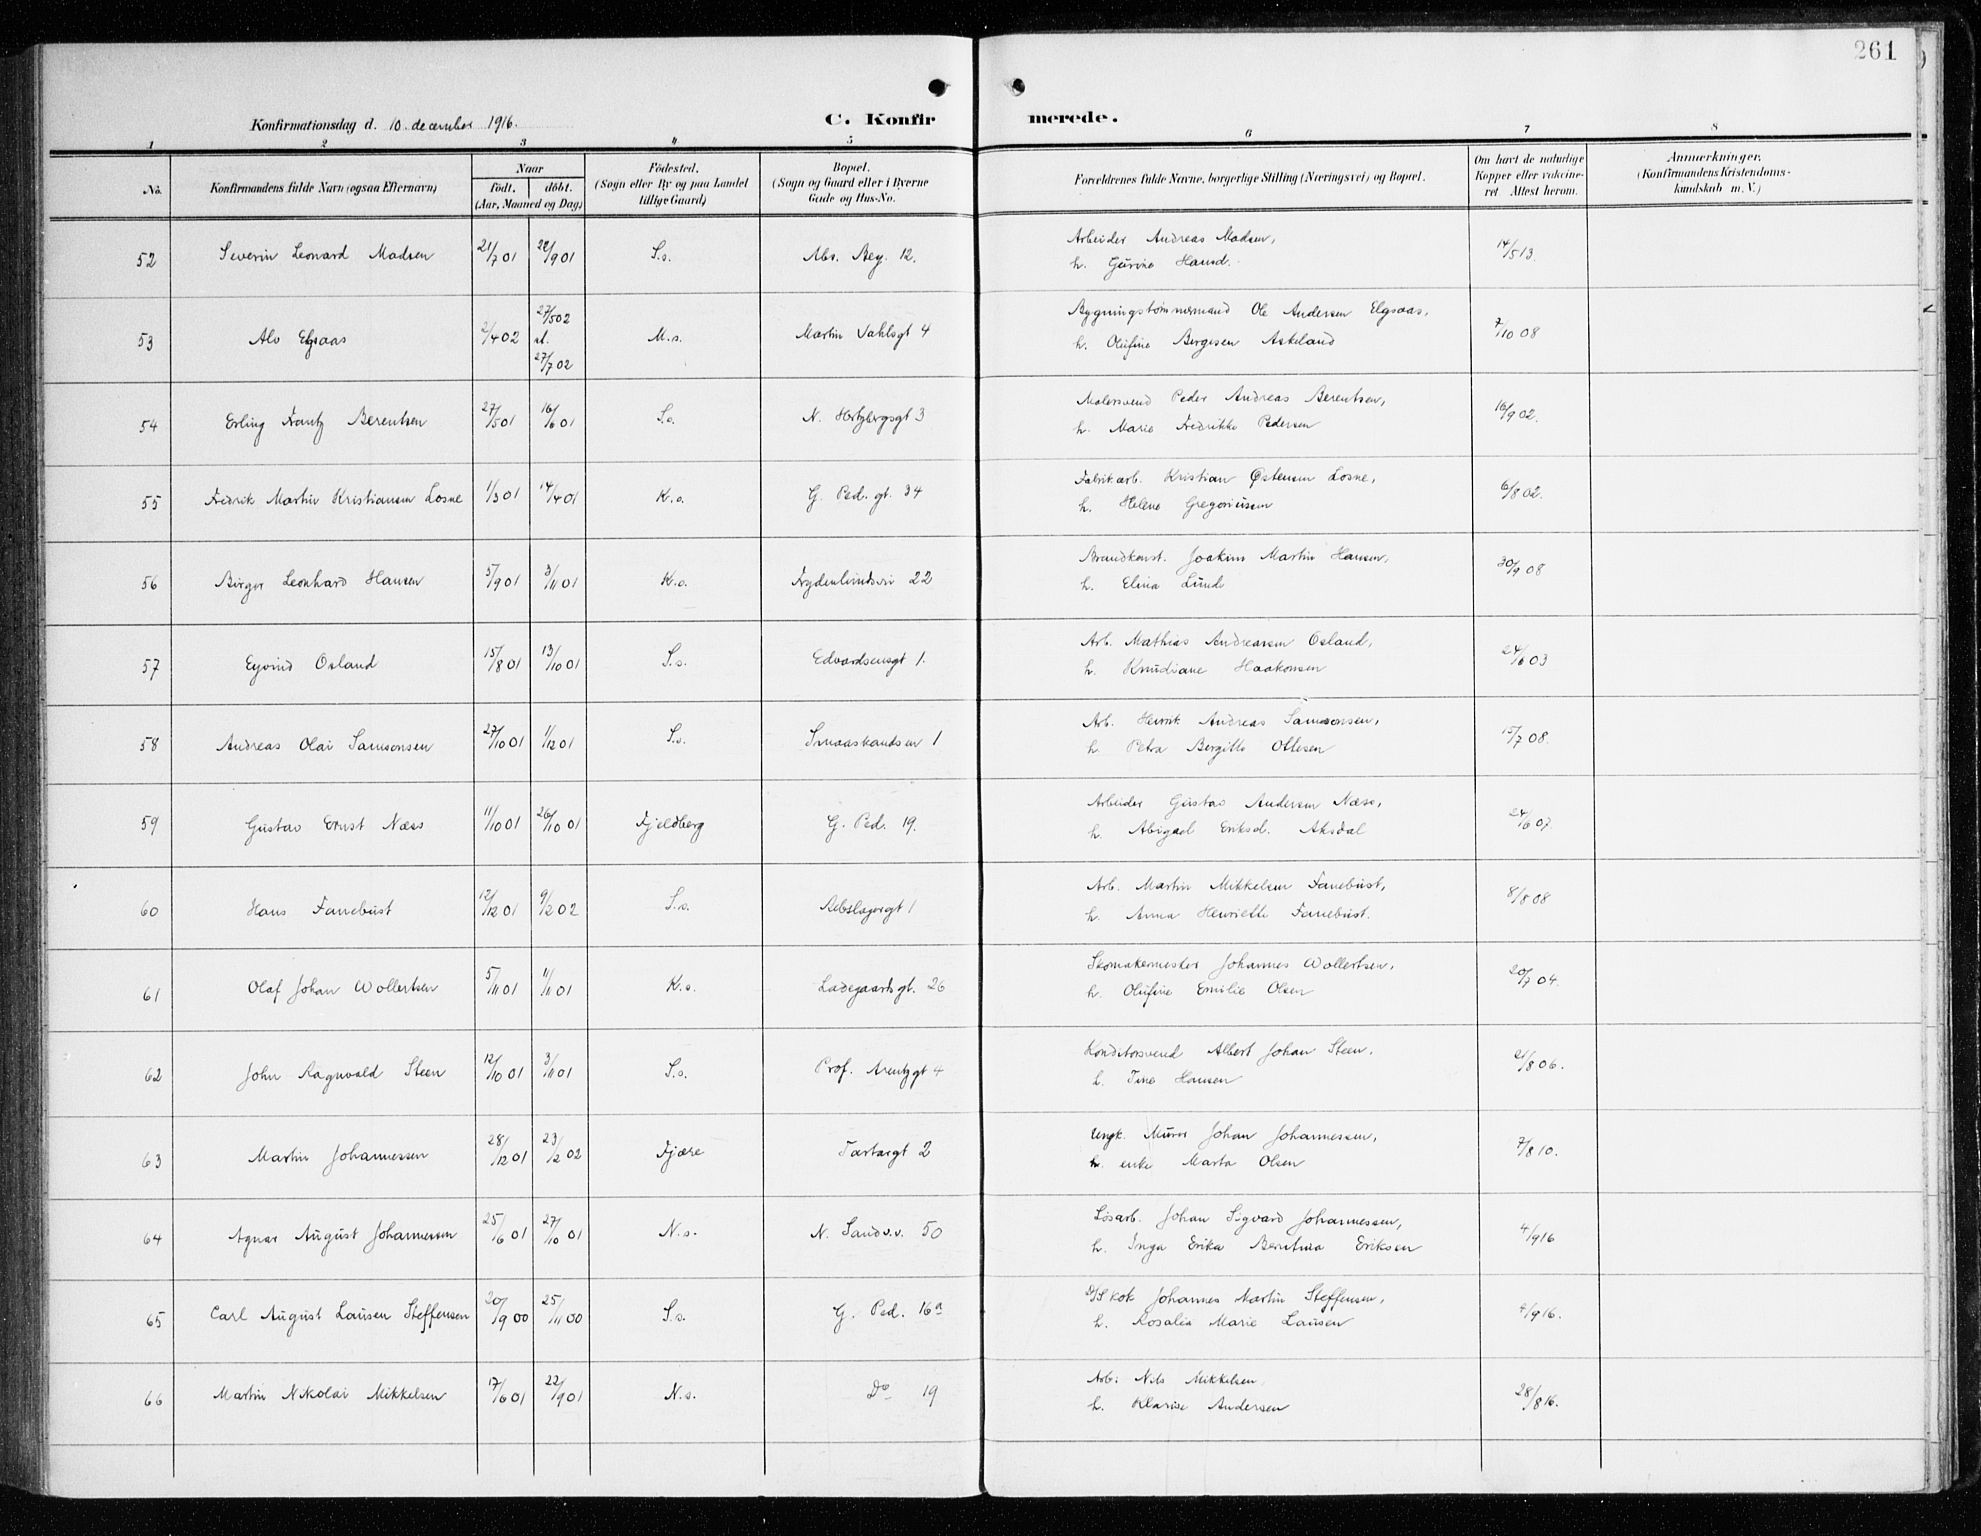 261
Konfirmationsdag d. 10. december 1916.
C. Konfirmerede.
1 2 3 4 5 6 7 8
No. Konfirmandens fulde Navn (ogsaa Efternavn) Naar født. døbt. (Aar, Maaned og Dag) Fødested. (Sogn eller By og paa Landet tillige Gaard) Bopæl. (Sogn og Gaard eller i Byerne Gade og Hus-No. Forældrenes fulde Navne, borgerlige Stilling (Næringsvei) og Bopæl. Om havt de naturlige Kopper eller vakcineret Attest herom. Anmærkninger. (Konfirmandens Kristendomskundskab m. V.)
52 Severin Leonard Madsen 21/7 01 22/9 01 S.s. Abs. Bey. 12. Arbeider Andreas Madsen, h. Gurine Hansd. 14/5 13.
53 Alv Elgsaas 2/4 02 27/5 02 st. 27/7 02 M.s. Martin Vahlsgt 4 Bygningstømmermand Ole Andersen Elgsaas, h. Olufine Bergesen Askeland 7/10 08
54 Erling Frantz Berentsen 27/5 01 16/6 01 S.s. N. Hertzbergsgt 3 Malersvend Peder Andreas Berentsen, h. Marie Fredrikke Pedersen 16/9 02.
55 Fredrik Martin Kristiansen Losne 1/3 01 14/4 01 K.s. G. Ped. gt. 34 Fabrikarb. Kristian Østensen Losne, h. Helene Gregoriussen 6/8 02.
56 Birger Leonhard Hansen 5/9 01 3/11 01 K.s. Frydenlundsvei 22 Brandkonst. Joakim Martin Hansen, h. Elina Lunde 30/9 08
57 Eyvind Osland 15/8 01 13/10 01 S.s. Edvardsensgt 1. Arb. Mathias Andreassen Osland, h. Knudiane Haakonsen 24/6 03
58 Andreas Olai Samsonsen 27/10 01 1/12 01 S.s. Smaaskandsen 1 Arb. Henrik Andreas Samsonsen, h. Petra Bergitte Ottesen 15/7 08.
59 Gustav Ernst Næss 11/10 01 26/10 01 Fjeldberg G. Ped. 19. Arbeider Gustav Andersen Næss, h. Abigael Eriksd. Aksdal 24/6 07.
60 Hans Fanebust 12/12 01 9/2 02 S.s. Rebslagergt 1 Arb. Martin Mikkelsen Fanebust, h. Anna Henriette Fanebust. 8/8 08
61 Olaf Johan Wollertsen 5/11 01 11/11 01 K.s. Ladegaardsgt. 26 Skomakermester Johannes Wollertsen, h. Olufine Emilie Olsen 20/7 04.
62 John Ragnvald Steen 12/10 01 3/11 01 S.s. Prof. Arentzgt 4 Konditorsvend Albert Johan Steen, h. Tine Hansen 21/8 06.
63 Martin Johannessen 28/12 01 23/2 02 Fjære Tartargt 2 Ungk. Murer Johan Johannessen, h. enke Marta Olsen 7/8 10.
64 Agnar August Johannessen 25/6 01 27/10 01 N.s. N. Sandv.v. 50 Løsarb. Johan Sigvard Johannessen, h. Inga Erika Berntina Eriksen 4/9 16
65 Carl August Lausen Steffensen 20/9 00 25/11 00 S.s. G. Ped. 16a D/S kok Johannes Martin Steffensen, h. Rosalia Marie Lausen 4/9 16.
66 Martin Nikolai Mikkelsen 17/6 01 22/9 01 N.s. Do 19 Arb: Nils Mikkelsen, h. Klarise Andersen 28/8 16.